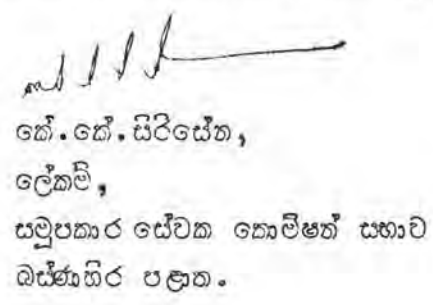 කේ. කේ. සිරිසේන,
ලේකම්,
සමූපකාර සේවක කොමිෂන් සභාව
බස්ණාහිර පළාත.